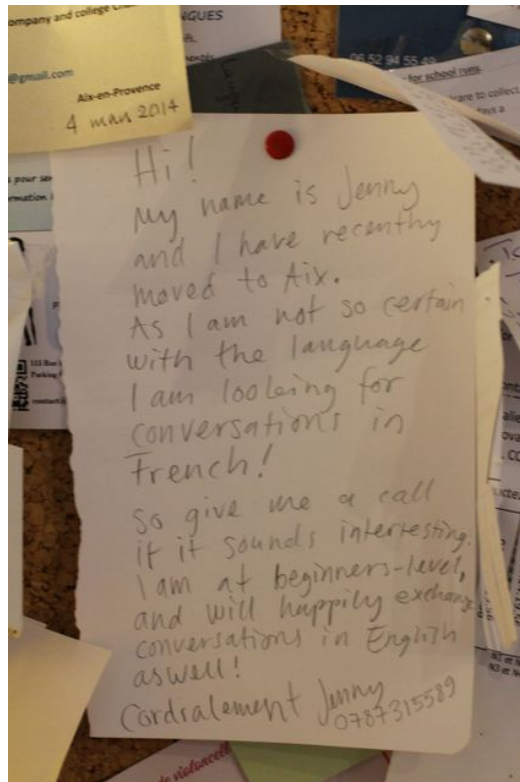 ompany and college
@gmail.com
Aix-en-Provence
4 mau 2014
NGUES
06 52 94 55 49
for school runs.
to collect
days a
pour
ormation
Hi!
My name is Jenny
and I have recenthy
moved to Aix.
As I am not so certain
with the language
I am looking for
conversations in
French!
So give me a call
if it sounds interresting.
I am at beginners-level,
and will happily exchange
conversations in English
aswell!
Cordialement Jenny
0787315589
113 Rue
Parking
contact
violoncell